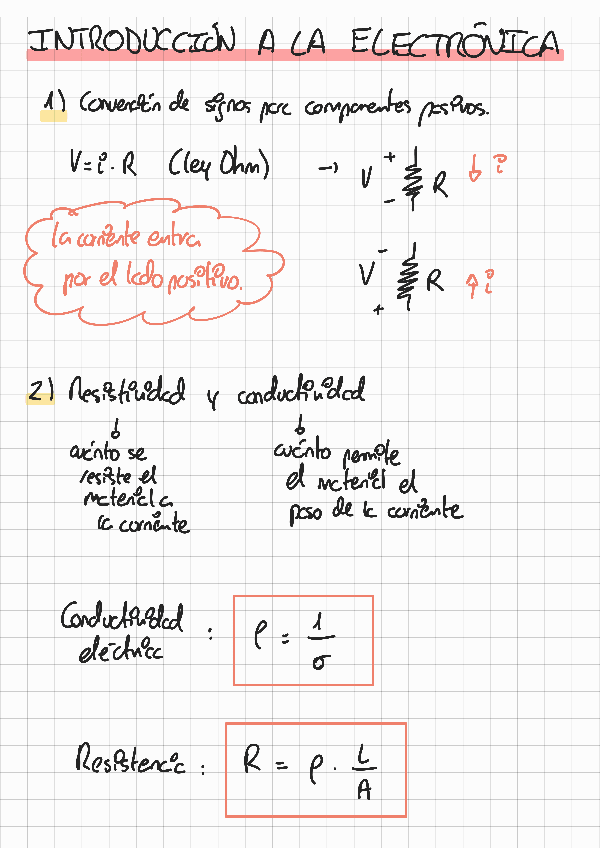 INTRODUCCIÓN A LA ELECTRÓNICA
1) Convención de signos para componentes pasivos.
V = i · R (ley Ohm) → V + - R ↓ i
La corriente entra
por el lado positivo.
V - + R ↑ i
2) Resistividad y conductividad
cuánto se
resiste el
material a
la corriente
cuánto permite
el material el
paso de la corriente
Conductividad
eléctrica : ρ = 1/σ
Resistencia : R = ρ · L/A